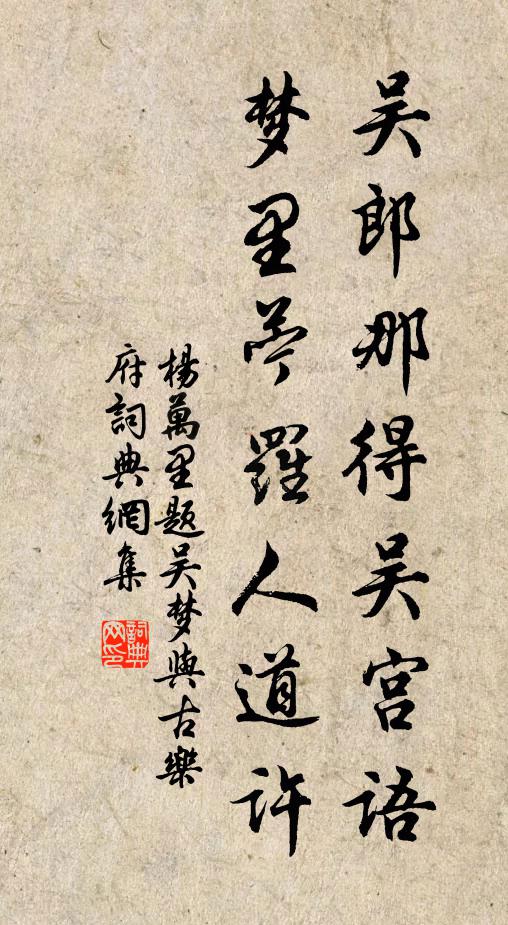 吴郎那得吴宫語
梦里苎羅人道許
楊萬里題吴梦與古樂
府詞典網集
詞典网印